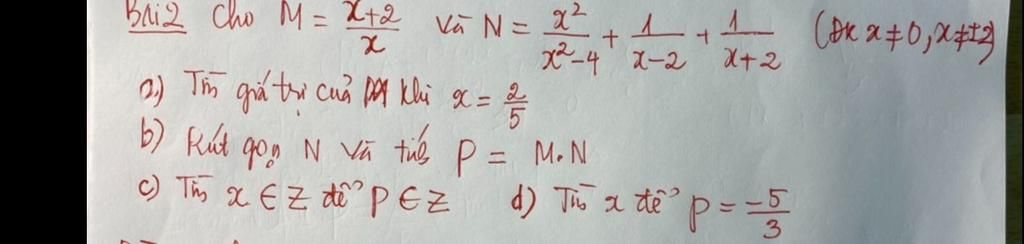 Bài 2 Cho M = x+2/x và N = x²/x²-4 + 1/x-2 + 1/x+2 (Đk x ≠ 0, x ≠ ±2)
a) Tìm giá trị của M khi x = 2/5
b) Rút gọn N và tính P = M.N
c) Tìm x ∈ Z để P ∈ Z d) Tìm x để P = -5/3